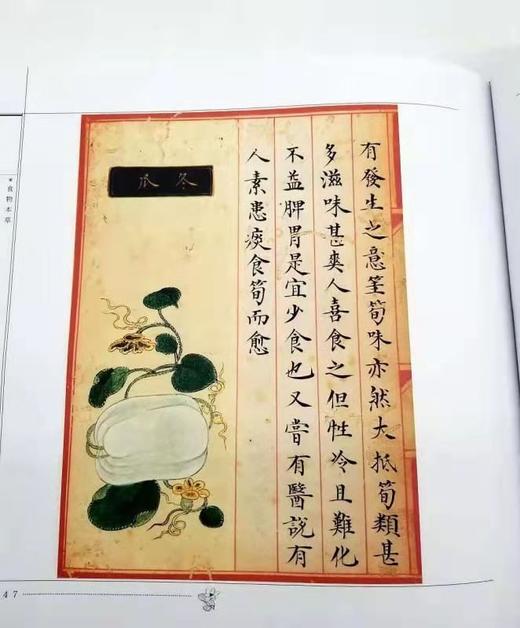 有發生之意筀筍味亦然大抵筍類甚
多滋味甚爽人喜食之但性冷且難化
不益脾胃是宜少食也又嘗有醫說有
人素患痰食筍而愈
冬瓜
食物本草
47